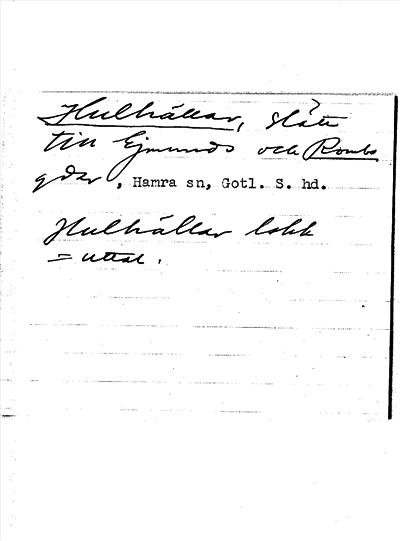 Hulhällar, slåte
till Ejmunds och Rombs
gdar, Hamra sn, Gotl. S. hd.
Hulhällar lokk
= uttal.